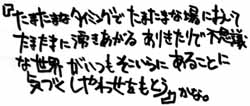 『たまたまなタイミングで たまたまな場において
たまたまに湧きあがる ありきたりで不思議
な世界がいつもそいらにあることに
気づくしやわせをもどう』かな。